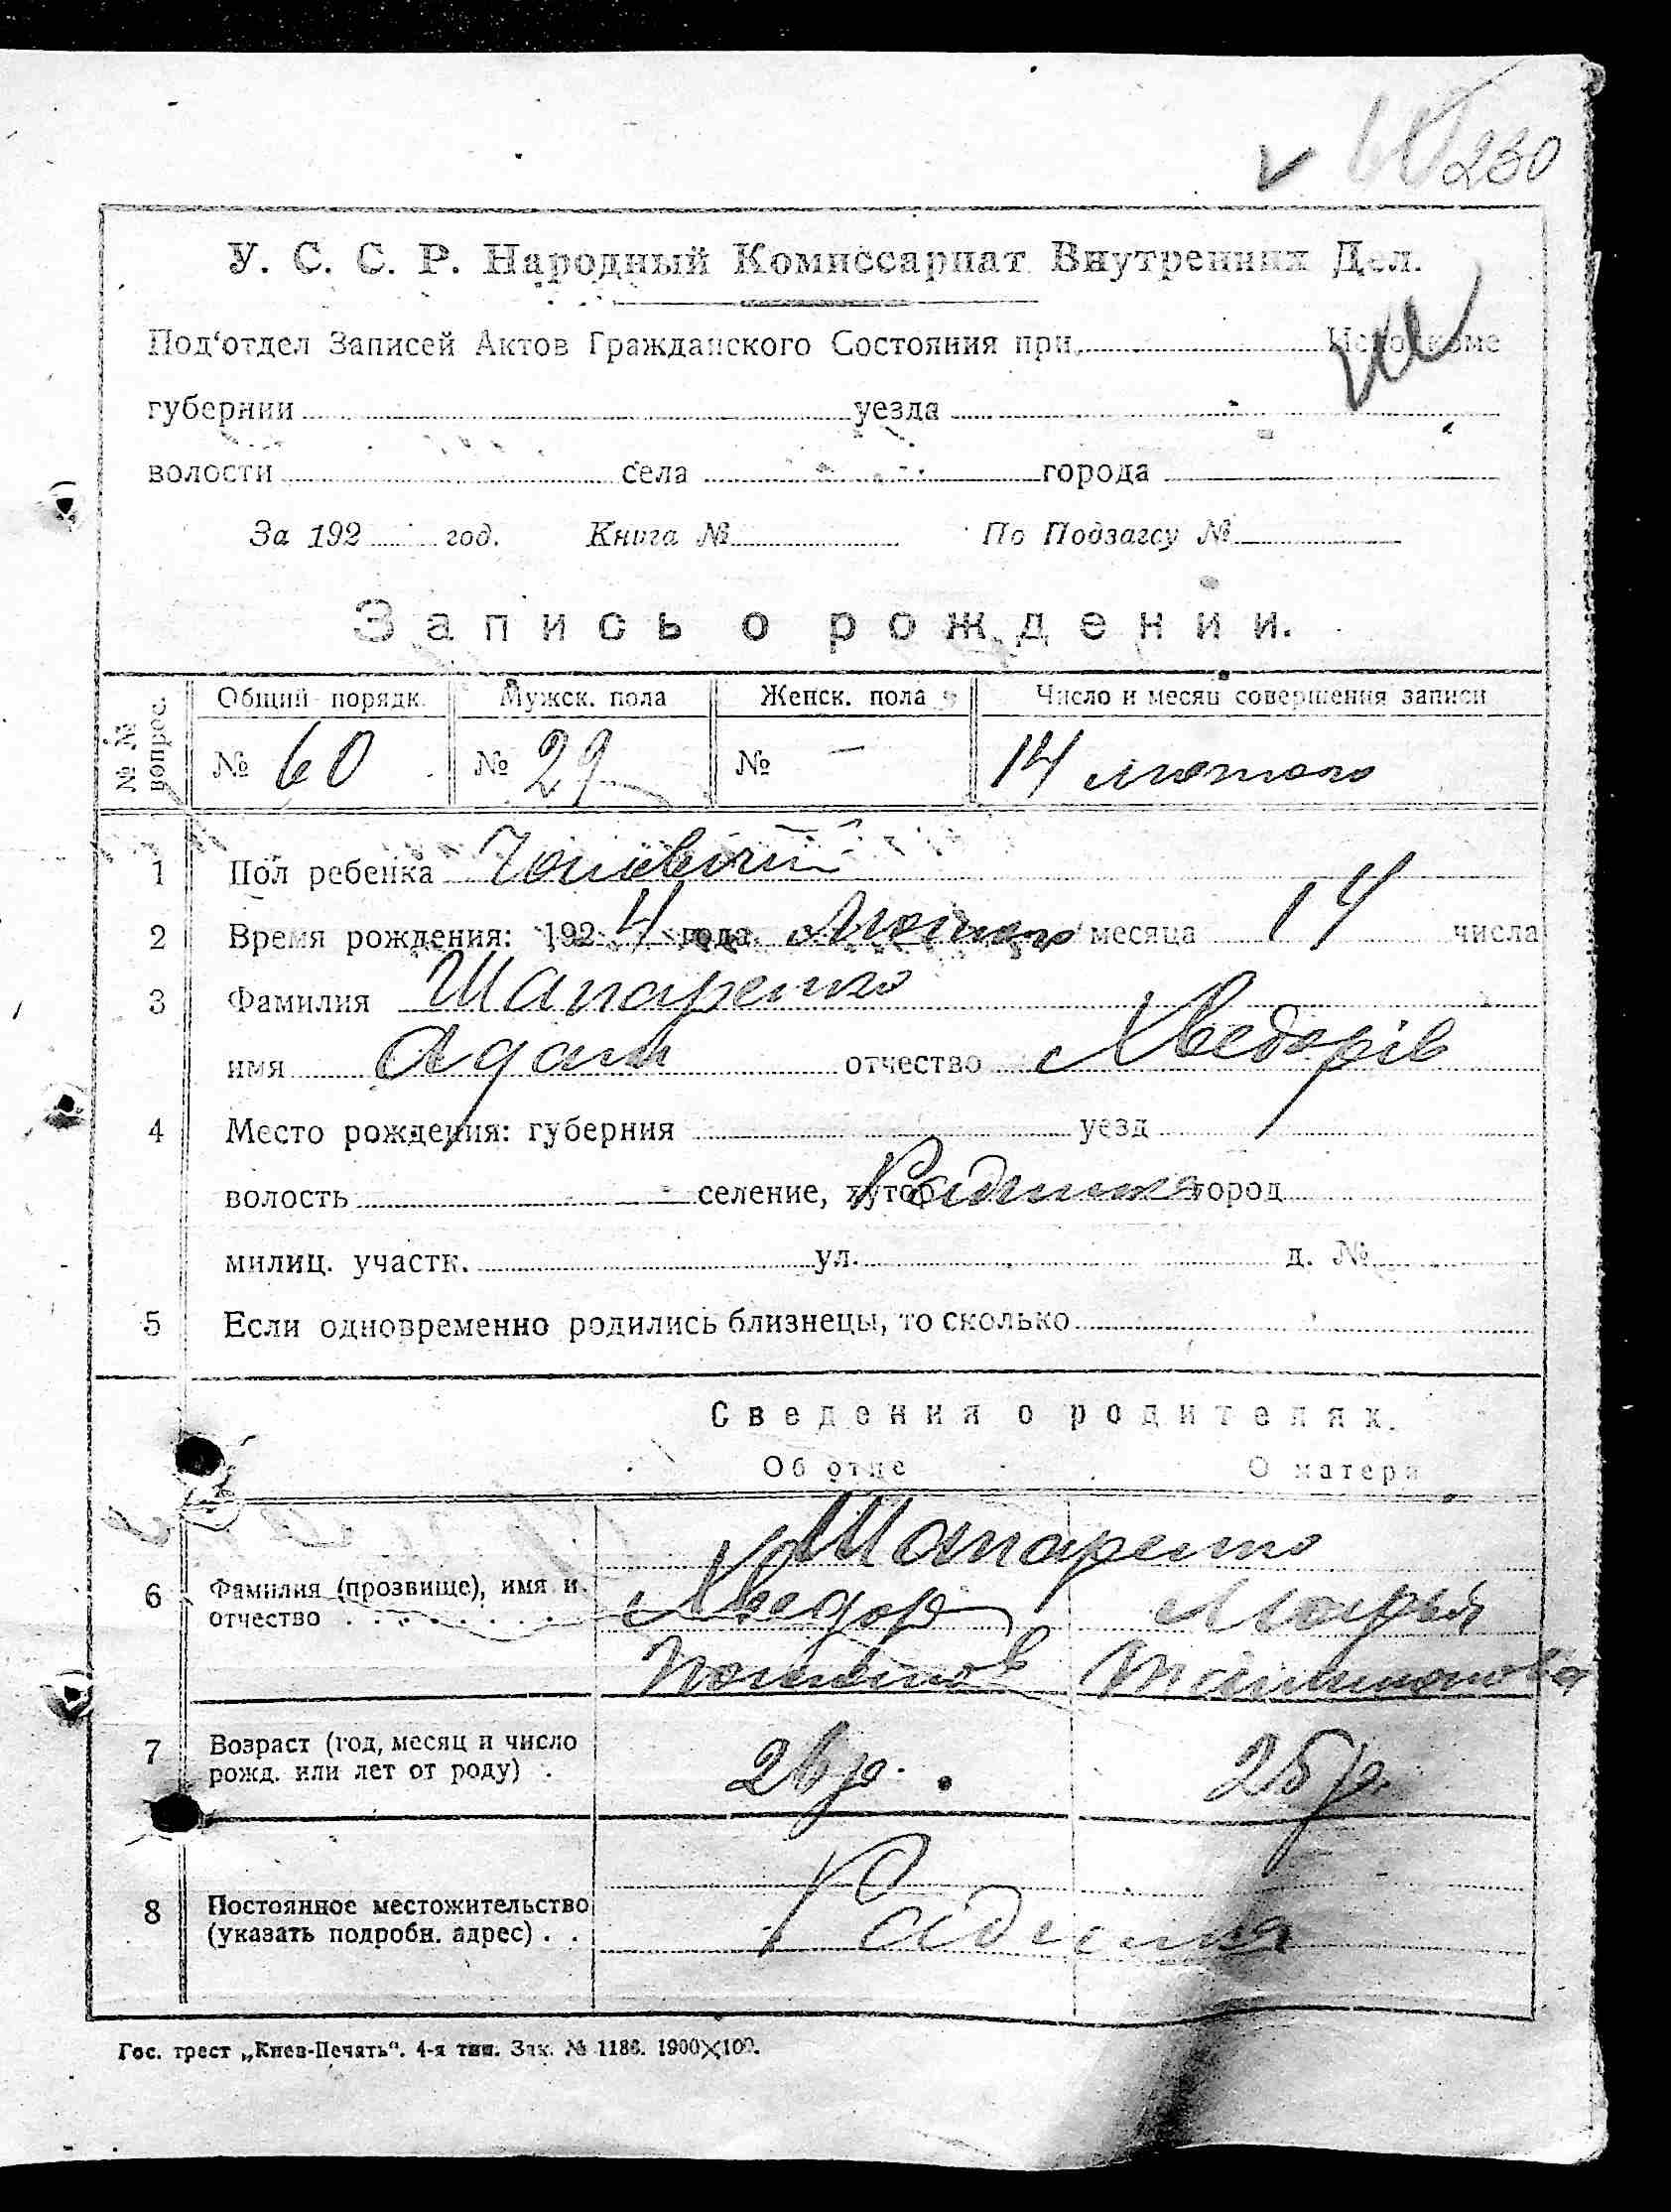 230
У. С. С. Р. Народный Комиссариат Внутренних Дел.
Под‘отдел Записей Актов Гражданского Состояния при Исполкоме
губернии уезда
волости села города
За 192 год. Книга № По Подзагсу №
Запись о рождении.
№ № вопрос. Общий порядк. Мужск. пола Женск. пола Число и месяц совершения записи
№ 60 № 29 № — 14 лютого
1 Пол ребенка Чоловічий
2 Время рождения: 1924 года Лютого месяца 14 числа
3 Фамилия Шапаренко
имя Адам отчество Хведорів
4 Место рождения: губерния уезд
волость селение, хутор город
милиц. участк. ул. д. №
5 Если одновременно родились близнецы, то сколько
Сведения о родителях.
Об отце О матери
Шапаренко
6 Фамилия (прозвище), имя и отчество Хведор Марья
7 Возраст (год, месяц и число рожд. или лет от роду) 26 р. 25 р.
8 Постоянное местожительство (указать подробн. адрес)
Гос. трест „Киев-Печать“. 4-я тип. Зак. № 1186. 1900×100.